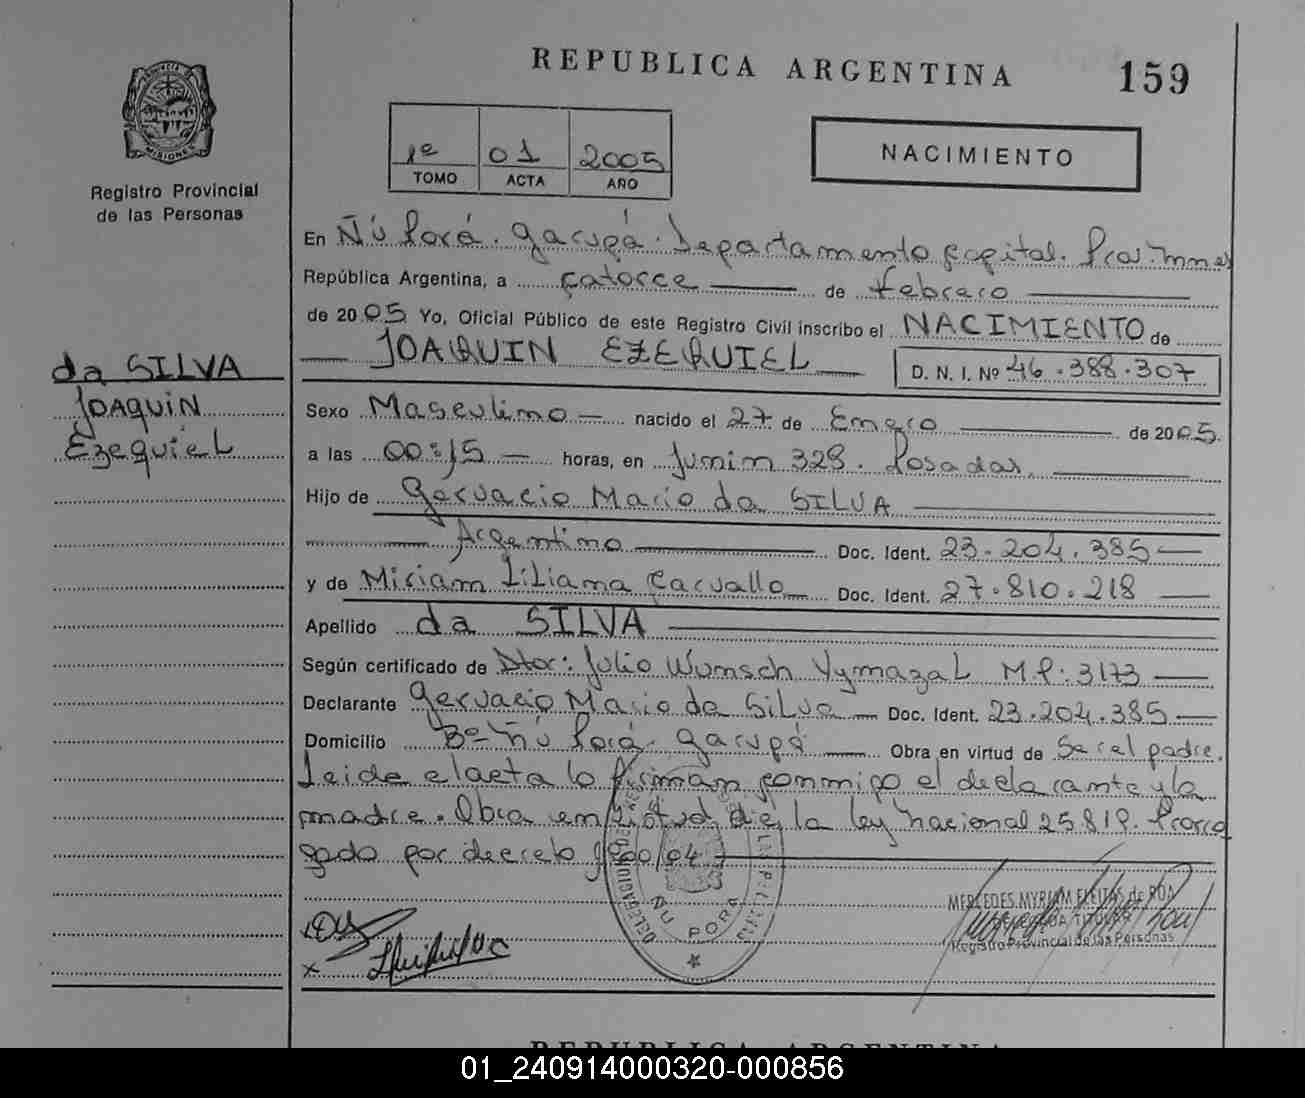 REPUBLICA ARGENTINA
159
1º 01 2005
TOMO ACTA AÑO
NACIMIENTO
MISIONES
Registro Provincial
de las Personas
da SILVA
JOAQUIN
EzequieL
En Ñú Porá. Garupá. Departamento Capital. Prov. Mnes
República Argentina, a catorce de febrero
de 2005 Yo, Oficial Público de este Registro Civil inscribo el NACIMIENTO de
JOAQUIN EZEQUIEL D. N. I. Nº 46.388.307
Sexo Masculino nacido el 27 de Enero de 2005.
a las 00:15 horas, en Junin 328. Posadas.
Hijo de Gervacio Mario da SILVA
Argentino Doc. Ident. 23.204.385
y de Miriam Liliana Carvallo Doc. Ident. 27.810.218
Apellido da SILVA
Según certificado de Dtor: Julio Wunsch Vymazal M.P: 3173
Declarante Gervacio Mario da Silva Doc. Ident. 23.204.385
Domicilio Bº Ñú Porá. Garupá Obra en virtud de Ser el padre.
Leida el acta la firman conmigo el declarante y la
madre. Obra en virtud de la ley nacional 25819. Prorro
gado por decreto
DELEGACION
ÑU PORA
MERCEDES MYRIAM FLEITAS de ROA
TITULAR
Registro Provincial de las Personas
REPUBLICA ARGENTINA
01_240914000320-000856